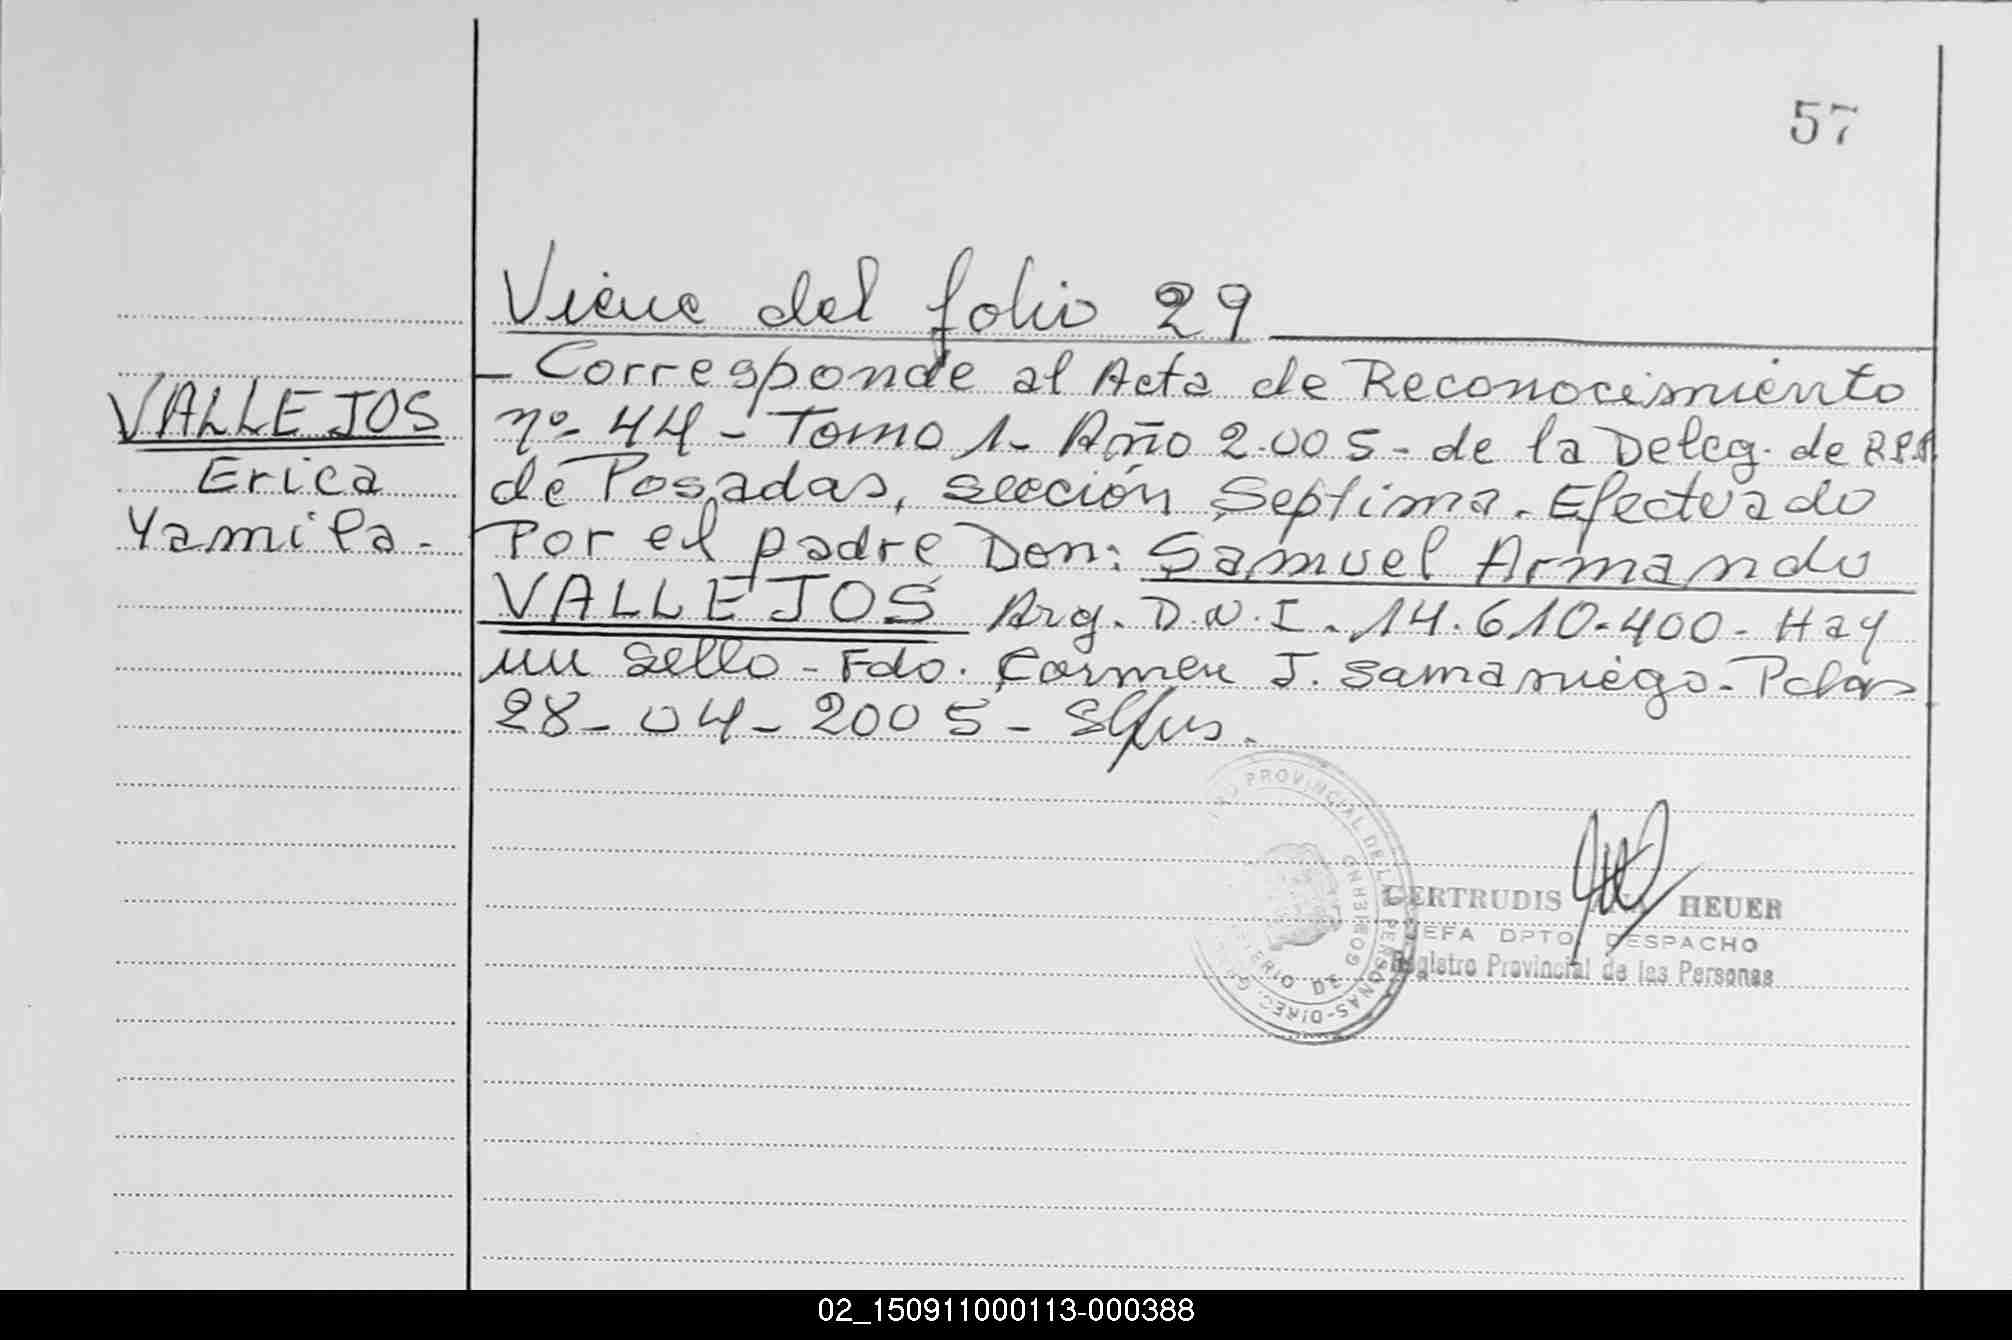 57
Viene del folio 29
VALLEJOS
Erica
Yamila.-
- Corresponde al Acta de Reconocimiento
nº 44 - Tomo 1- Año 2.005 - de la Deleg. de R.P.P.
de Posadas, sección Septima. Efectuado
Por el padre Don: Samuel Armando
VALLEJOS Arg. D.N.I. 14.610.400- Hay
un sello - Fdo. Carmen J. Samaniego. Pdas
28-04-2005-
PROVINCIAL DE LAS PERSONAS-DIREC. G
TERIO DE GOBIERNO
GERTRUDIS ANA HEUER
JEFA DPTO DESPACHO
Registro Provincial de las Personas
02_150911000113-000388